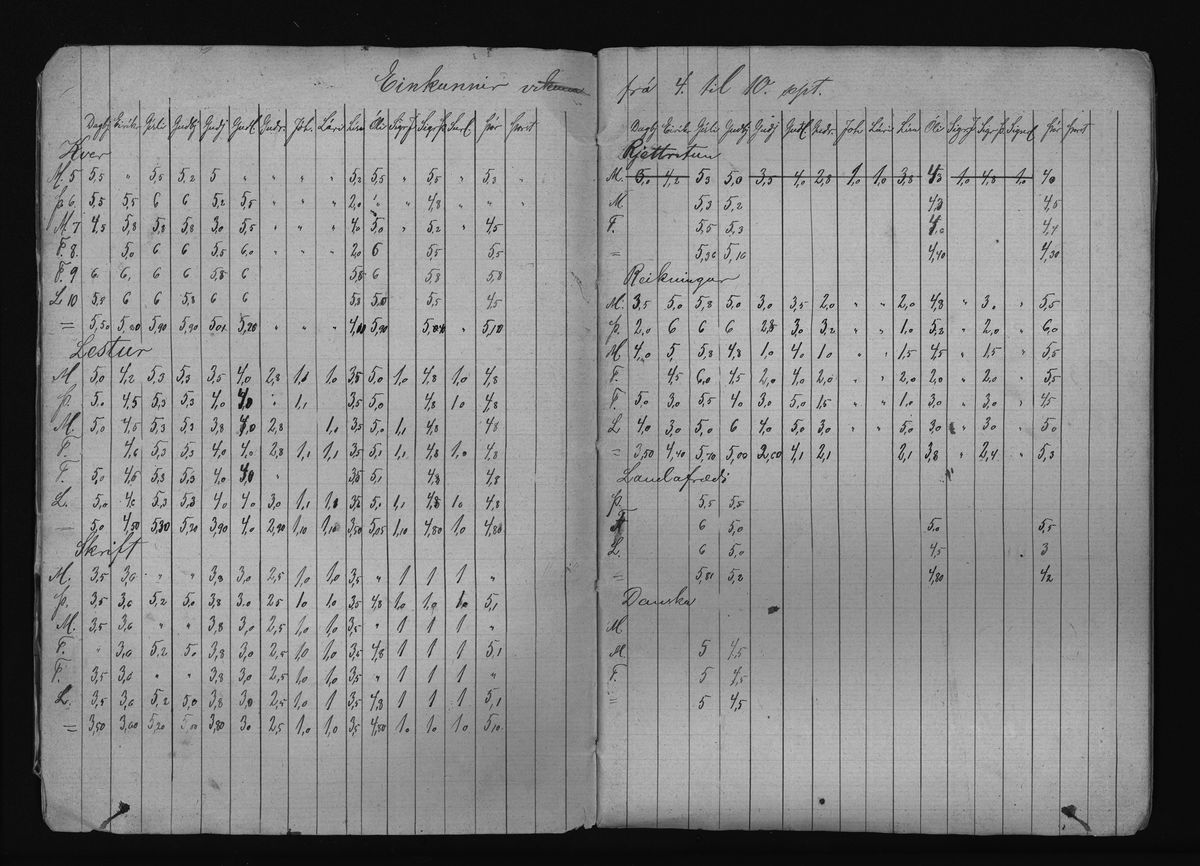 Einkunnir
Dagbj Eirik Gísli Guðbj Guðj Guðl Guðr. Joh. Lári Lín Ólí Sigrf Sigr Þór Þorst
Kver
M. 5 5,5 " 5,5 5,2 5 " " " " 5,2 5,5 " 5,5 " 5,3 "
Þ 6 5,5 5,5 6 6 5,2 5,5 " " " 2,0 " " 4,8 " " "
M. 7 4,5 5,8 5,8 5,8 3,0 5,5 " " " 4,0 5,0 " 5,2 " 4,5
F. 8. 5,0 6 6 5,5 6,0 " " " 2,0 6 5,5 5,5
F. 9 6 6, 6 6 5,8 6 5,8 6 5,8 5,8
L 10 5,5 6 6 5,8 6 6 5,3 5,0 5,5 4,5
= 5,50 5,80 5,90 5,90 5,01 5,20 " " " 5,90 " 5,10
Lestur
M. 5,0 4,2 5,3 5,3 3,5 4,0 2,8 1,1 1,0 3,5 5,0 1,0 4,8 1,0 4,8
Þ. 5,0 4,5 5,3 5,3 4,0 4,0 " 1,1 3,5 5,0 4,8 1,0 4,8
M. 5,0 4,5 5,3 5,3 3,8 4,0 2,8 1,0 3,5 5,0 1,1 4,8 4,8
F. 4,6 5,3 5,3 4,0 4,0 2,8 1,1 1,1 3,5 5,1 1,1 4,8 1,0 4,8
F. 5,0 4,5 5,3 5,3 4,0 4,0 " 3,5 5,1 4,8 4,8
L. 5,0 4,6 5,3 5,3 4,0 4,0 3,0 1,1 1,0 3,5 5,1 1,1 4,8 1,0 4,8
— 5,0 4,50 5,30 5,30 3,90 4,0 2,90 1,10 1,10 3,50 5,05 1,10 4,80 1,0 4,80
Skrift
M. 3,5 3,6 " " 3,8 3,0 2,5 1,0 1,0 3,5 " 1 1 1 "
Þ. 3,5 3,6 5,2 5,0 3,8 3,0 2,5 1,0 1,0 3,5 4,8 1,0 1,0 1,0 5,1
M. 3,5 3,6 " " 3,8 3,0 2,5 1,0 1,0 3,5 " 1 1 1 "
F. " 3,6 5,2 5,0 3,8 3,0 2,5 1,0 1,0 3,5 4,8 1 1 1 5,1
F. 3,5 3,6 " " 3,8 3,0 2,5 1,0 1,0 3,5 " 1 1 1 "
L. 3,5 3,6 5,2 5,0 3,8 3,0 2,5 1,0 1,0 3,5 4,8 1 1 1 5,1
= 3,50 3,60 5,20 5,00 3,80 3,0 2,5 1,0 1,0 3,5 4,80 1,0 1,0 1,0 5,10
frá 4. til 10. sept.
Dagbj Eirik Gísli Guðbj Guðj Guðl Guðr. Joh Lári Lín Ólí Sigrf Sigr Signý Þór Þorst
Rjettritun
M. 3,0 4,2 5,3 5,0 3,5 4,0 2,8 1,0 1,0 3,8 4,3 1,0 4,8 1,0 4,0
M 5,3 5,2 4,3 4,5
F. 5,5 5,3 4,4
= 5,36 5,16 4,40 4,30
Reikningar
M. 3,5 5,0 5,8 5,0 3,0 3,5 2,0 " " 2,0 4,8 " 3,0 " 5,5
Þ. 2,0 6 6 6 2,8 3,0 3,2 " " 1,0 5,2 " 2,0 " 6,0
M 4,0 5, 5,8 4,8 1,0 4,0 1,0 " " 1,5 4,5 " 1,5 " 5,5
F. 4,5 6,0 4,5 2,0 4,0 2,0 " " 2,0 2,0 " 2,0 " 5,5
F. 5,0 3,0 5,5 4,0 3,0 5,0 1,5 " " 1,0 3,0 " 3,0 " 4,5
L 4,0 3,0 5,0 6 4,0 5,0 3,0 " " 5,0 3,0 " 3,0 " 5,0
= 3,50 4,40 5,70 5,00 2,60 4,1 2,1 2,1 3,8 " 2,4 " 5,3
Landafræði
Þ. 5,5 5,5
6 5,0 5,0 5,5
L. 6 5,0 4,5 3
= 5,81 5,2 4,80 4,2
Danska
M
M. 5 4,5
F. 5 4,5
= 5 4,5